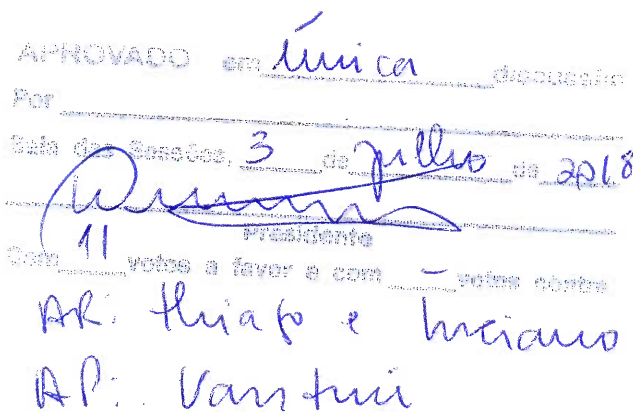 APROVADO em única discussão
Por
Sala das Sessões, 3 de julho de 2018
Presidente
Com 11 votos a favor e com - votos contra
AR: Thiago e Luciano
AP: